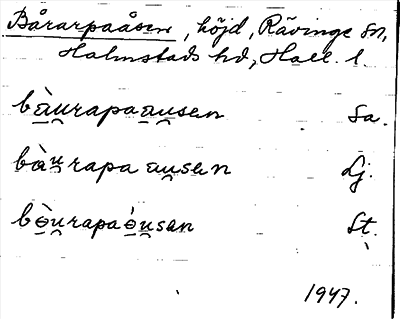 Bårarpaåsen, höjd, Rävinge sn,
Halmstads hd, Hall. l.
bàu̯rapaau̯sen Sa.
bàu̯rapa au̯sen Lj.
bò̤u̯rapaó̤u̯sen St.
1947.